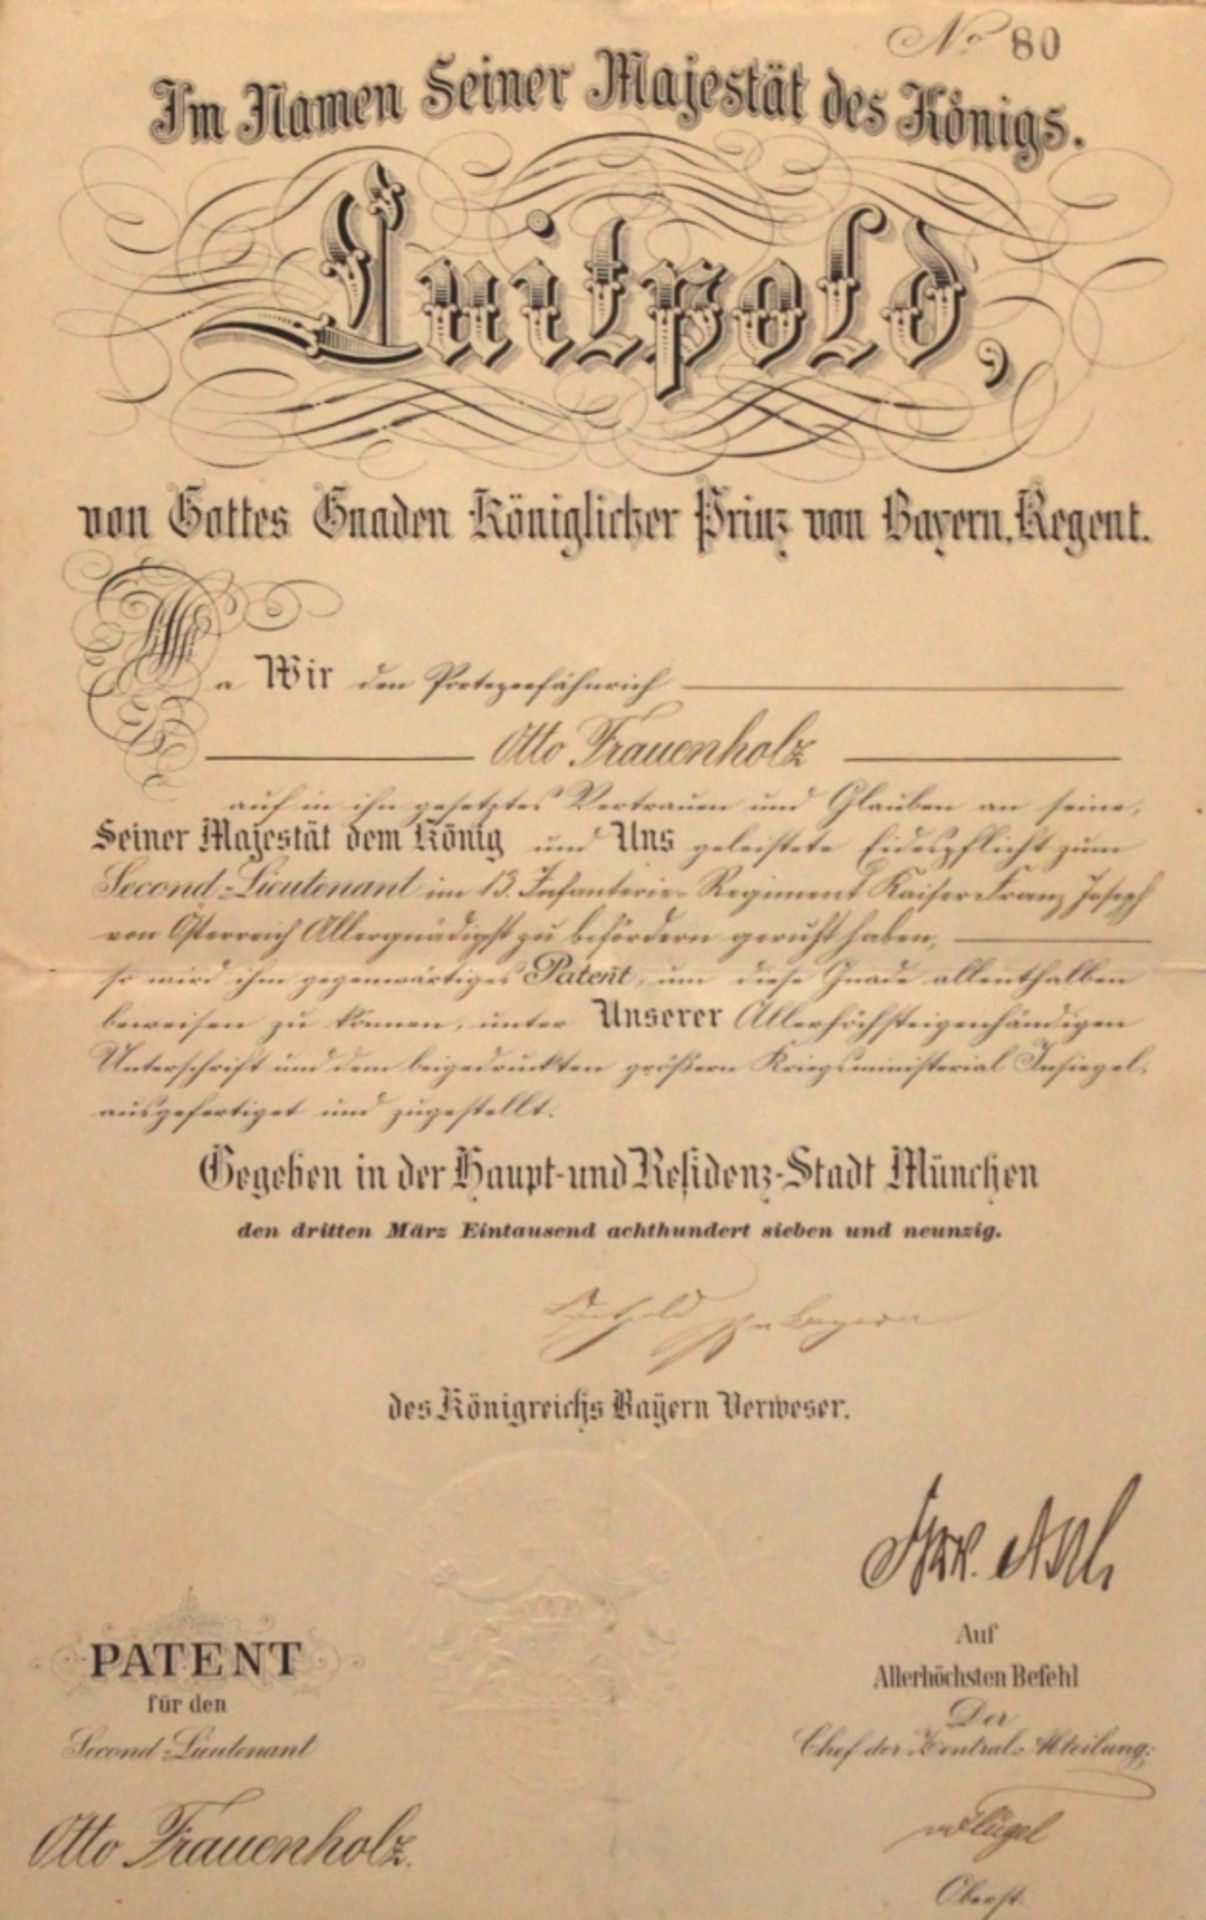 No 80
Im Namen Seiner Majestät des Königs.
Luitpold,
von Gottes Gnaden Königlicher Prinz von Bayern, Regent.
Da Wir den Portepeefähnrich
Otto Frauenholz
auf in ihn gesetztes Vertrauen und Glauben an seine,
Seiner Majestät dem König und Uns geleistete Eidespflicht zum
Second-Lieutenant im 13. Infanterie-Regiment Kaiser Franz Joseph
von Österreich Allergnädigst zu befördern geruht haben,
so wird ihm gegenwärtiges Patent, um diese Gnade allenthalben
beweisen zu können, unter Unserer Allerhöchsteigenhändigen
Unterschrift und dem beigedruckten größern Kriegsministerial Insiegel
ausgefertiget und zugestellt.
Gegeben in der Haupt-und Residenz-Stadt München
den dritten März Eintausend achthundert sieben und neunzig.
Luitpold Pz v Bayern
des Königreichs Bayern Verweser.
Frhr. v. Asch
PATENT
für den
Second-Lieutenant
Otto Frauenholz.
Auf
Allerhöchsten Befehl
Der
Chef der Zentral-Abteilung:
vFlügel
Oberst.